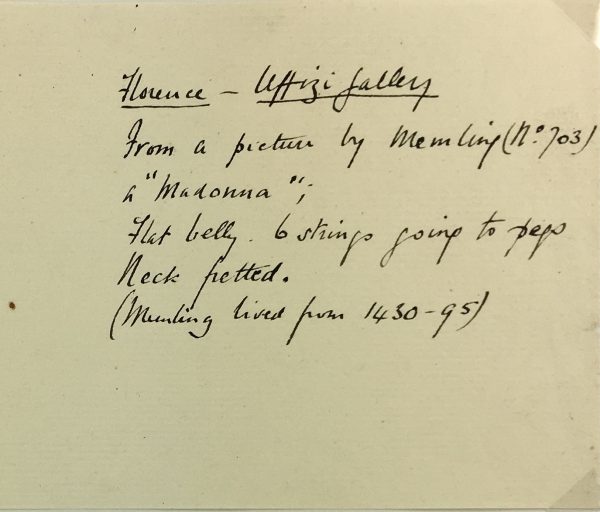 Florence - Uffizi Gallery
From a picture by Memling (No. 703)
a "Madonna";
Flat belly. 6 strings going to pegs
Neck fretted.
(Memling lived from 1430-95)